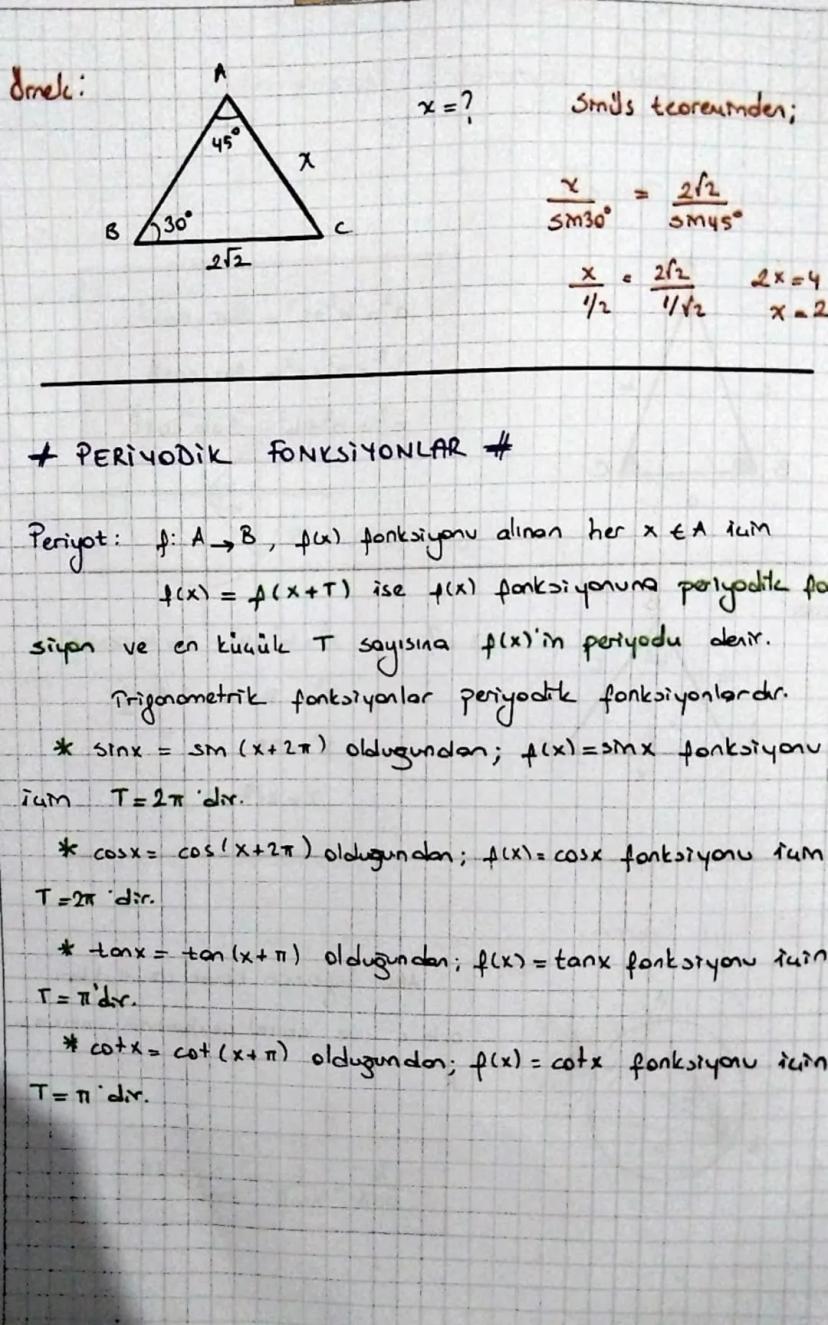 Örnek:
A
45°
x
B
30°
C
2√2
x = ?
Sinüs teoreminden;
x / sin30° = 2√2 / sin45°
x / 1/2 = 2√2 / 1/√2 2x = 4
x = 2
# PERİYODİK FONKSİYONLAR #
Periyot: f: A → B, f(x) fonksiyonu alınan her x ∈ A için
f(x) = f(x+T) ise f(x) fonksiyonuna periyodik fo
siyon ve en küçük T sayısına f(x)'in periyodu denir.
Trigonometrik fonksiyonlar periyodik fonksiyonlardır.
* sinx = sin (x+2π) olduğundan; f(x) = sinx fonksiyonu
için T = 2π 'dir.
* cosx = cos(x+2π) olduğundan; f(x) = cosx fonksiyonu için
T = 2π 'dir.
* tanx = tan(x+π) olduğundan; f(x) = tanx fonksiyonu için
T = π'dir.
* cotx = cot(x+π) olduğundan; f(x) = cotx fonksiyonu için
T = π 'dir.